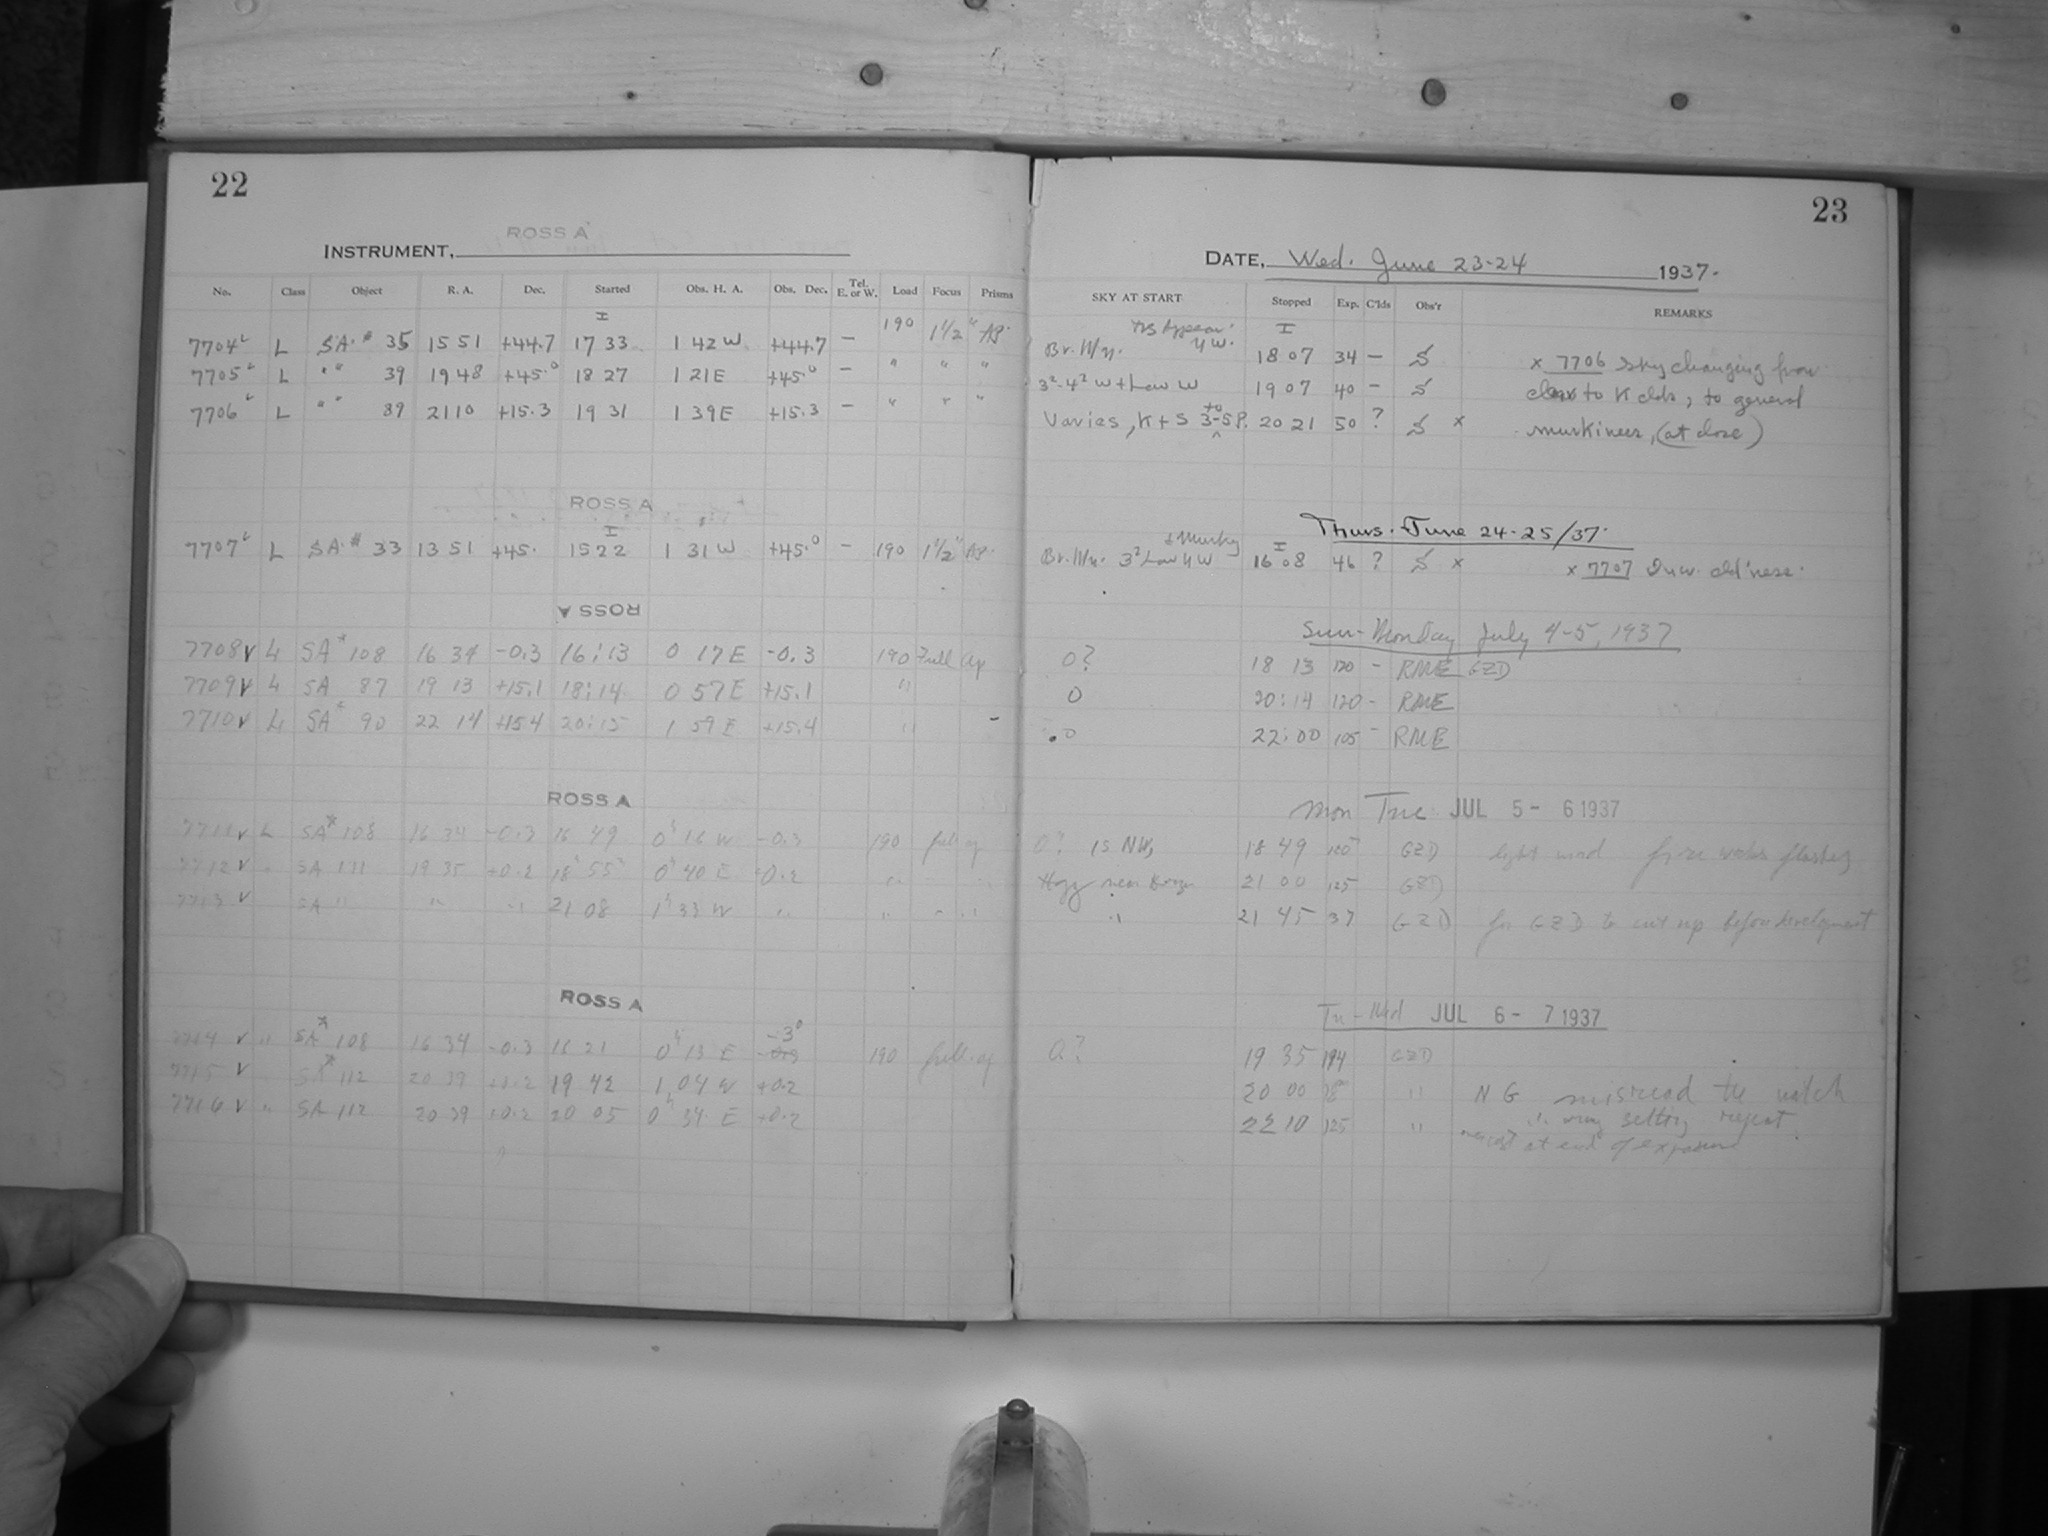 22
23
ROSS A
INSTRUMENT,
DATE, Wed. June 23-24 1937.
No. Class Object R. A. Dec. Started Obs. H. A. Obs. Dec. Tel. E. or W. Load Focus Prisms SKY AT START Stopped Exp. C'lds Obs'r REMARKS
7704 L S.A. # 35 15 51 +44.7 17 33 1 42 W +44.7 — 190 1 1/2" Ap. 18 07 34 — S x 7706 Sky changing from
7705 L " " 39 19 48 +45.0 18 27 1 21 E +45.0 — " " " 3²-4² W + Low W 19 07 40 — S clear to K clds, to general
7706 L " " 89 21 10 +15.3 19 31 1 39 E +15.3 — " " " Varies, K + S to 3-5 P. 20 21 50 ? S x murkiness, (at close)
ROSS A
Thurs. June 24-25/37.
7707 L S.A. # 33 13 51 +45. 15 22 1 31 W +45.0 — 190 1 1/2" Ap. 3² Low NW + Murky 16 08 46 ? S x x 7707
ROSS A
Sun-Monday July 4-5, 1937
7708 v L SA* 108 16 34 -0.3 16:13 0 17 E -0.3 190 Full ap 0? 18 13 120 - RME GZD
7709 v L SA 87 19 13 +15.1 18:14 0 57 E +15.1 " 0 20:14 120 - RME
7710 v L SA* 90 22 14 +15.4 20:15 1 59 E +15.4 " 0 22:00 105 - RME
ROSS A
Mon Tue JUL 5 - 6 1937
7711 v L SA* 108 16 34 -0.3 16 49 0h 16 W -0.3 190 full ap 0? 18 49 120 GZD light wind fire works flashes
7712 v " SA 111 19 35 +0.2 18h 55 0h 40 E +0.2 " " Hazy near 21 00 125 GZD
7713 v SA " " " 21 08 1h 33 W " " " " " 21 45 37 GZD for GZD to cut up before development
ROSS A
Tu - Wed JUL 6 - 7 1937
7714 v " SA* 108 16 34 -0.3 16 21 0h 13 E -3° 190 full ap 0? 19 35 194 GZD
7715 v " SA* 112 20 39 +0.2 19 42 1 04 W +0.2 20 00 18 " N G misread the watch
7716 v " SA 112 20 39 +0.2 20 05 0h 34 E +0.2 22 10 125 " wrong setting repeat
at end of exposure